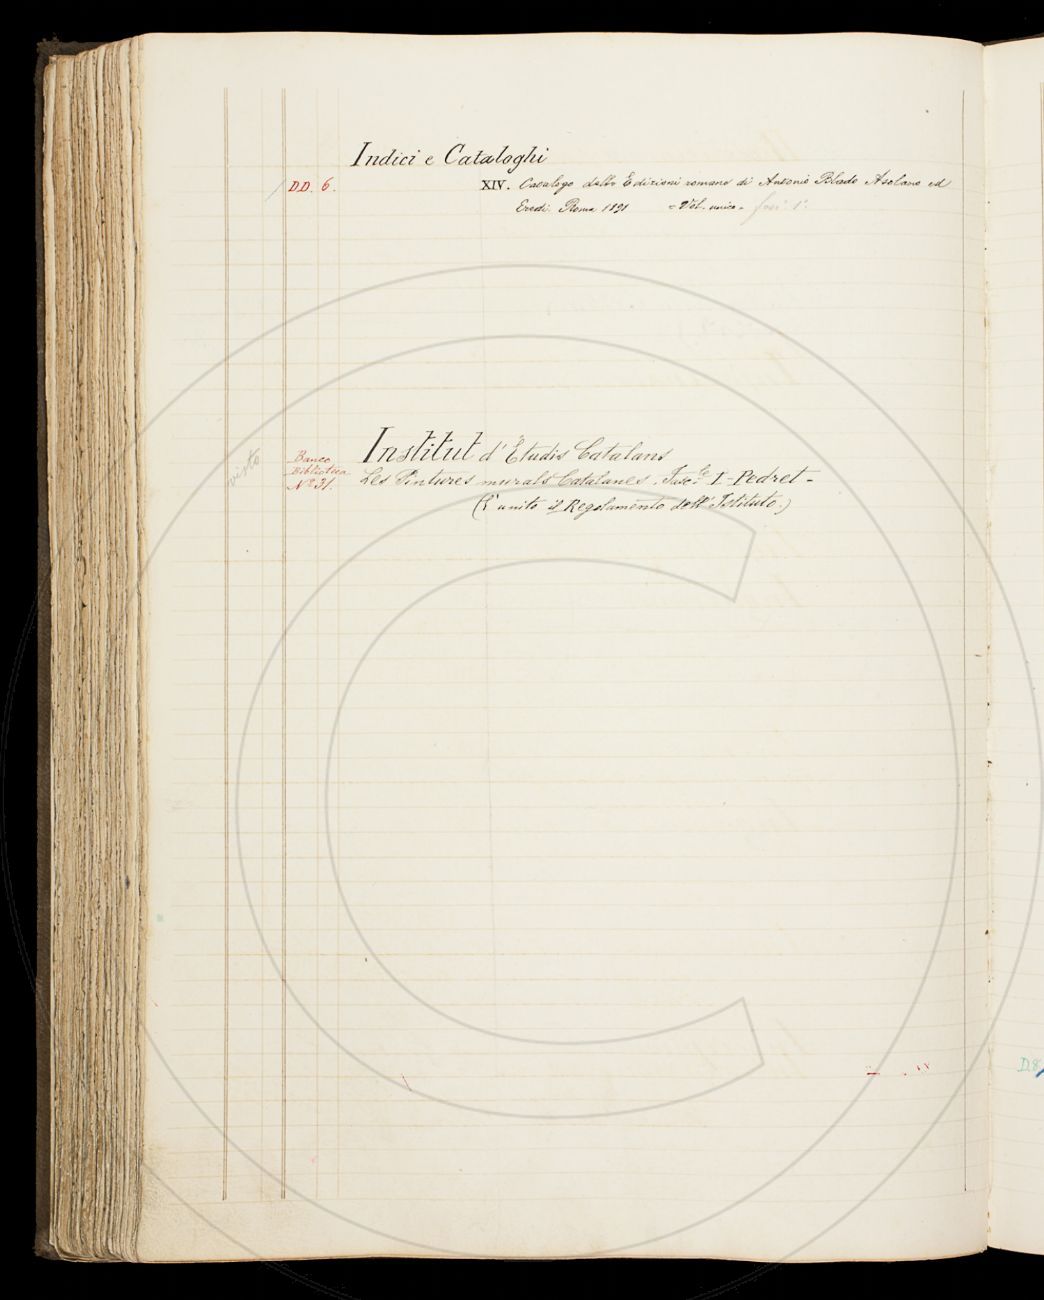 Indici e Cataloghi
D.D. 6.
XIV. Catalogo delle Edizioni romane di Antonio Blado Asolano ed
Eredi. Roma 1891 = Vol. unico = fasc. 1º.
visto
Institut d'Etudis Catalans
Banco
Biblioteca
Nº 31.
Les Pintures murals Catalanes. Fasc.le I - Pedret -
(È unito il Regolamento dell'Istituto.)
D.8